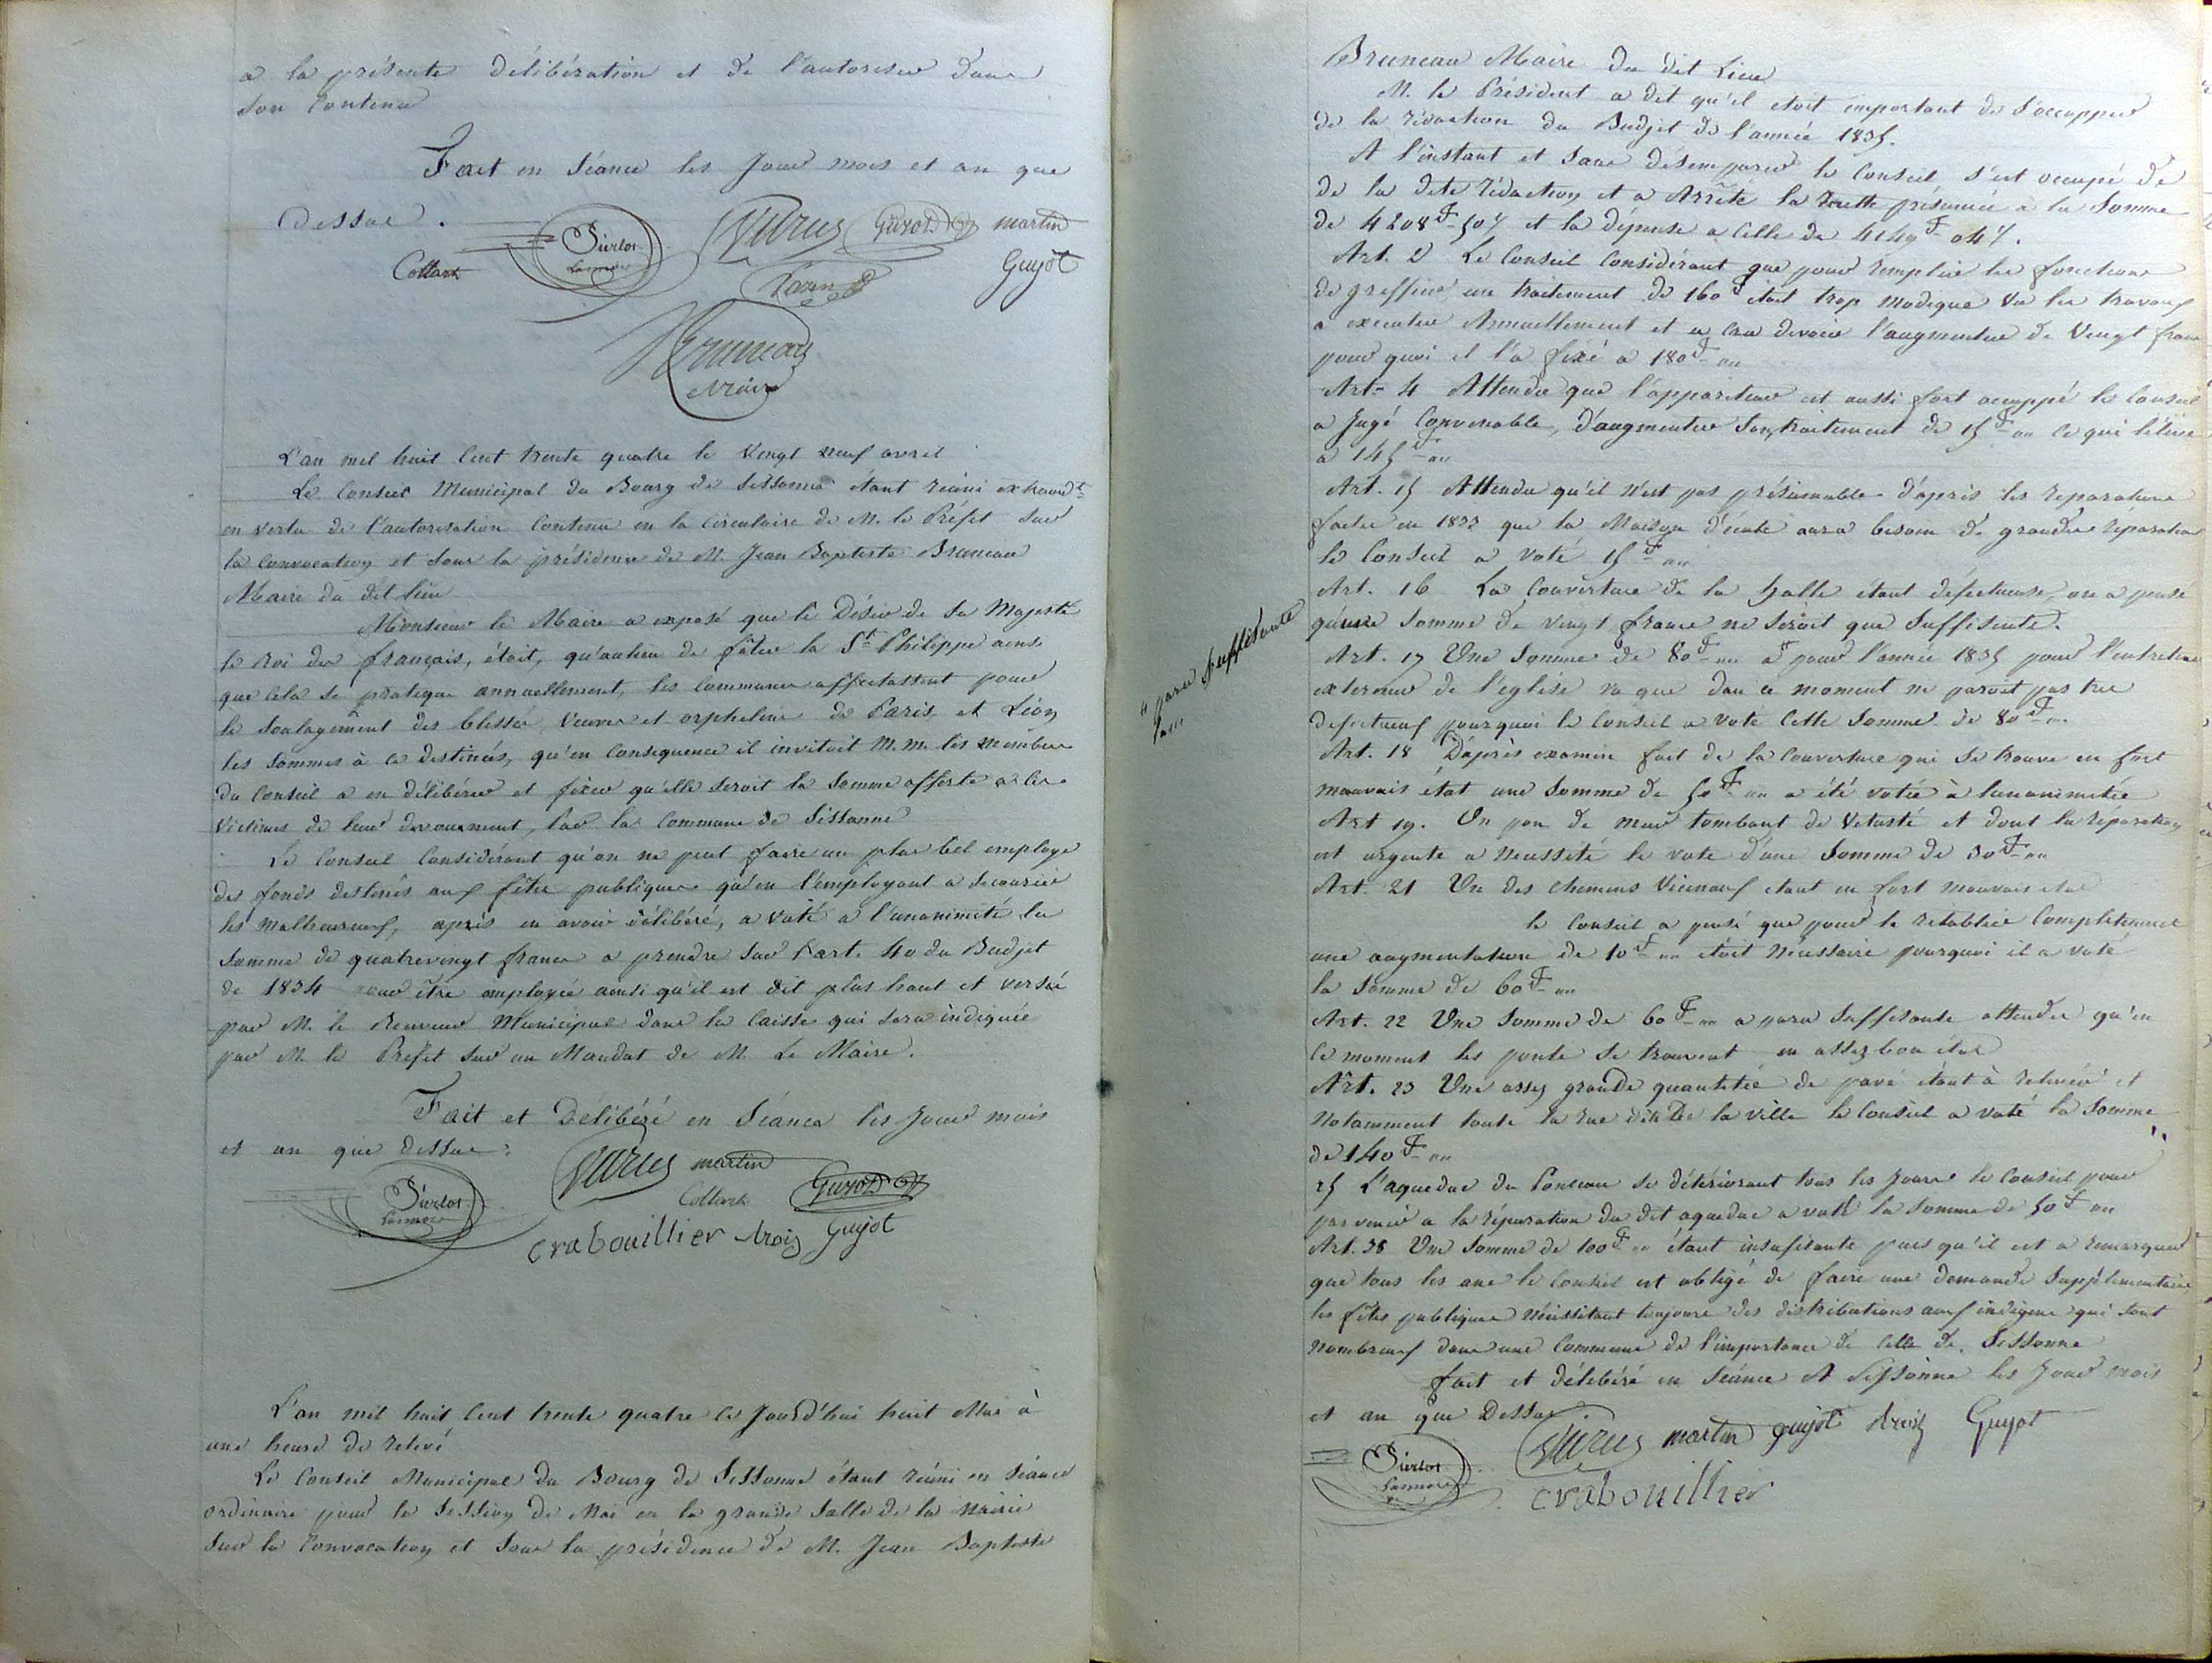 a la présente délibération et de l'autoriser dans
son contenu
Fait en Séance les Jour mois et an que
Dessus.
Sierlot Lannois Varus Guyot martin
Collart Guyot
Bruneau
Maire
L'an mil huit Cent trente quatre le Vingt neuf avril
Le Conseil Municipal du Bourg de Sissonne étant réuni extraord.t
en vertu de l'autorisation Contenu en la Circulaire de M. le Préfet sur
la Convocation et sous la présidence de M. Jean Baptiste Bruneau
Maire du dit lieu
Monsieur le Maire a exposé que le Désir de Sa Majesté
le Roi des français, étoit, qu'au lieu de fêter la St Philippe ainsi
que cela se pratique annuellement, les Communes affectassent pour
le Soulagement des blessés, Veuves et orphelins de Paris et Lion
les Sommes à ce destinées, qu'en Consequence il invitoit M.M. les membres
du Conseil a en délibérer et fixer qu'elle seroit la Somme offerte a ces
Victimes de leur devouement, par la Commune de Sissonne
Le Conseil Considérant qu'on ne peut faire un plus bel employe
des fonds destinés aux fêtes publiques qu'en l'employant a Secourir
les Malheureux, après en avoir délibéré, a voté a l'unanimité la
Somme de quatrevingt francs a prendre sur l'art. 40 du Budjet
de 1834 pour être employée ainsi qu'il est dit plus haut et versée
par M. le Receveur Municipal dans la Caisse qui sera indiquée
par M. le Préfet sur un Mandat de M. Le Maire.
Fait et Délibéré en Séance les Jour mois
et an que dessus :
Sierlot Lannois Varus martin Collart Guyot
Crabouillier Arois Guyot
L'an mil huit Cent trente quatre ce Jourd'hui huit Mai à
une heure de relevé
Le Conseil Municipal du Bourg de Sissonne étant réuni en Séance
ordinaire pour la Session de Mai en la grande Salle de la Mairie
sur la Convocation et sous la présidence de M. Jean Baptiste
Bruneau Maire du dit Lieu
M. le Président a dit qu'il etoit important de s'occupper
de la rédaction du Budjet de l'année 1835.
A l'instant et sans désemparer le Conseil s'est occupé de
de la dite rédaction et a Arrêté la Recette présumée à la Somme
de 4208 F 50 % et la dépense a Celle de 4149 F 04 %.
Art. 2 Le Conseil Considérant que pour remplir les fonctions
de greffier un traitement de 160 F étoit trop modique vu les travaux
a executer Annuellement et a cru devoir l'augmenter de Vingt francs
pour quoi il l'a fixé a 180 F
Art. 4 Attendu que l'appariteur est aussi fort occuppé le Conseil
a Jugé Convenable, d'augmenter son traitement de 15 F ce qui l'élève
a 145 F
Art. 15 Attendu qu'il n'est pas présumable d'après les reparations
faites en 1833 que la Maison d'école aura besoin de grandes réparations
le Conseil a voté 15 F
Art. 16 La Couverture de la halle étant défectueuse, on a pensé
qu'une Somme de Vingt francs ne seroit que Suffisante.
Art. 17 Une Somme de 80 F a pour l'année 1835 pour l'entretien
exterieur de l'église vu que dans ce moment ne paroit pas très
defectueux pourquoi le Conseil a voté Cette Somme de 80 F
"paru Suffisante
Art. 18 D'après examen fait de la Couverture qui se trouve en fort
mauvais état une Somme de 50 F a été votée à l'unanimitée
Art 19. Un pan de mur tombant de Vetusté et dont la réparation
est urgente a necessité le vote d'une Somme de 30 F
Art. 21 Un des chemins Vicinaux etant en fort mauvais état
le Conseil a pensé que pour le retablir Completement
une augmentation de 10 F étoit Nécessaire pourquoi il a voté
la Somme de 60 F
Art. 22 Une Somme de 60 F a paru Suffisante attendu qu'en
ce moment les ponts se trouvent en assez bon état
Art. 23 Une assez grande quantitée de pavé étant à relever et
Notamment toute la rue dite de la Ville le Conseil a voté la Somme
de 140 F
25 L'aqueduc du Ponceau se détériorant tous les Jours le Conseil pour
parvenir a la réparation du dit aqueduc a voté la Somme de 50 F
Art. 38 Une Somme de 100 F étant insufisante puis qu'il est a remarquer
que tous les ans le Conseil est obligé de faire une demande Supplémentaire
les fêtes publiques nécessitant toujours des distributions aux indigens qui sont
Nombreux dans une Commune de l'importance de Celle de Sissonne
fait et délibéré en Séance A Sissonne les Jour mois
et an que Dessus.
Sierlot Lannois Varus martin Guyot Arois Guyot
Crabouillier